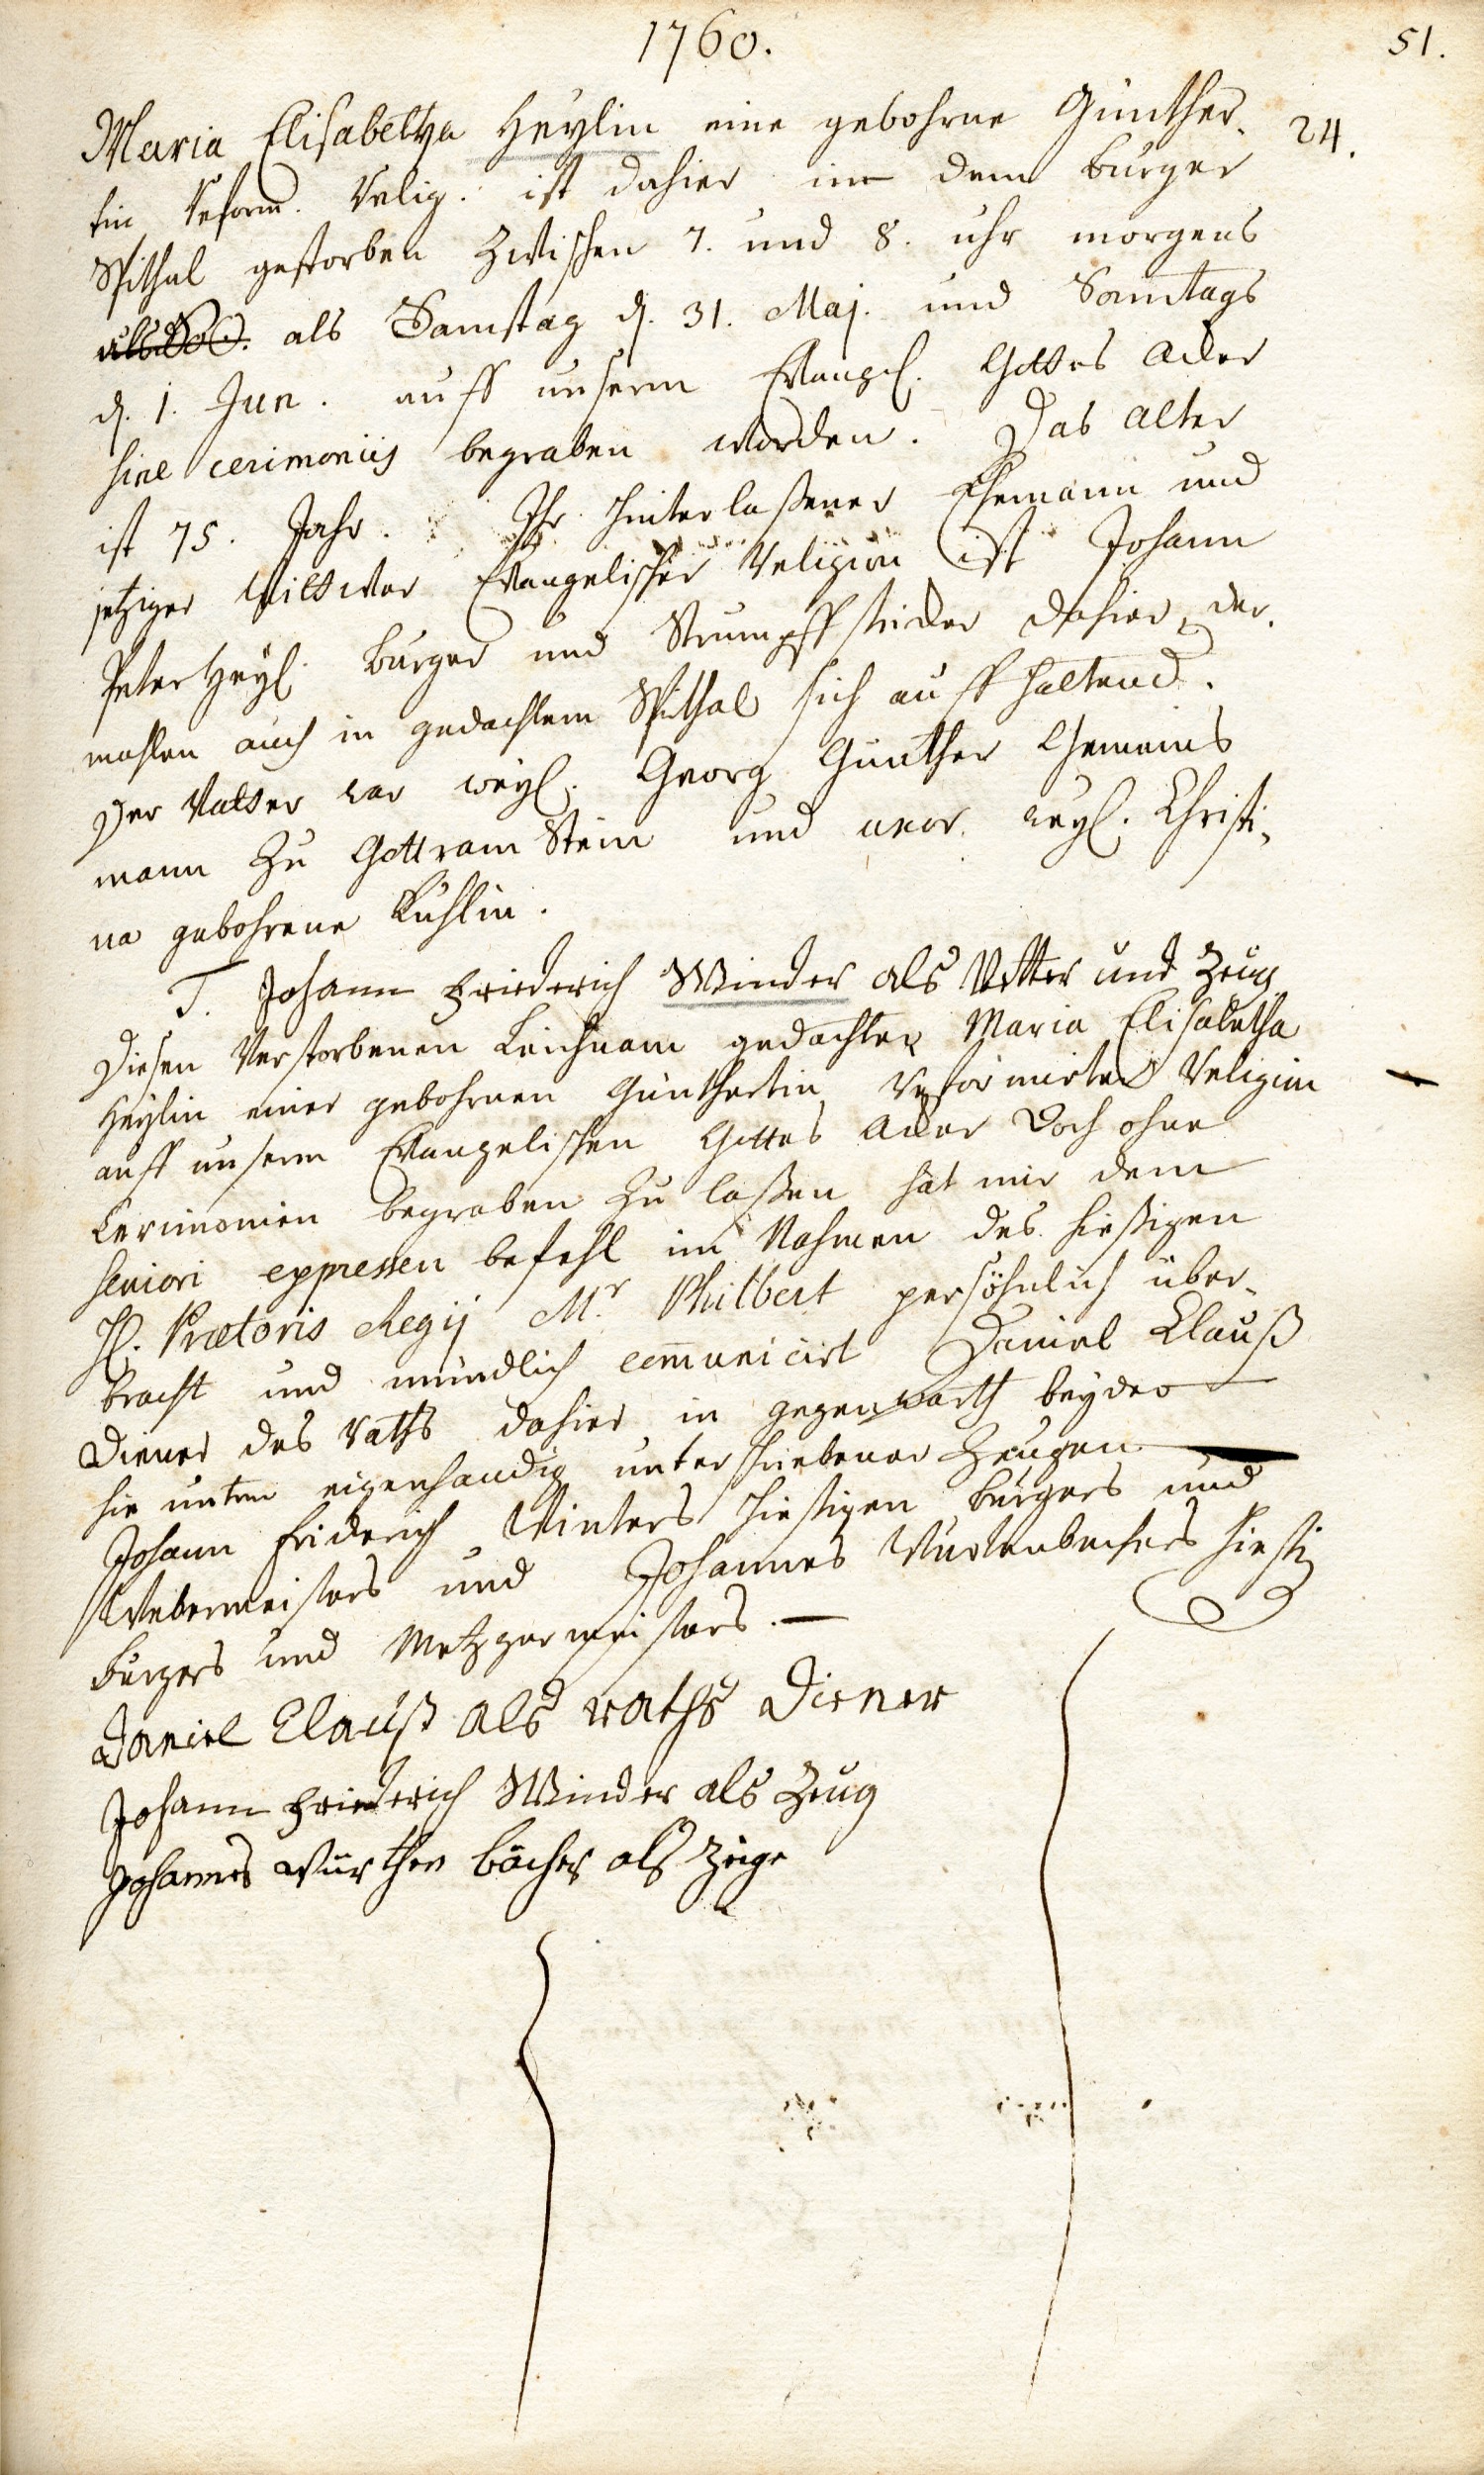 1760.
51.
Maria Elisabetha Heÿlin eine gebohrne Günther,
24.
tin reform. Relig. ist dahier in dem burger
Spithal gestorben zwischen 7. und 8. uhr morgens
als Samstag d. 31. Maj. und Sonntags
d. 1. Jun. auff unserm Evangel. Gottes acker
sine cerimoniis begraben worden. Das alter
ist 75. Jahr. Ihr hinterlaßener Ehemann und
jetziger Wittwer Evangelischer Religion ist Johann
Peter Heÿl burger und Strumpffstricker dahier, der,
mahlen auch in gedachtem Spithal sich auffhaltend.
Der Vatter war weyl. Georg Günther Gemeins
mann zu Gottramstein und uxor. weyl. Christi,
na gebohrene Kuhlin.
T. Johann Friederich Winder als Vetter und Zeug
Diesen Verstorbenen Leichnam gedachter Maria Elisabetha
Heylin einer gebohrnen Günthertin reformirter Religion
auff unserm Evangelischen Gottes acker doch ohne
Cerimonien begraben zu laßen hat mir dem
Seniori expressen befehl im Nahmen des hiesigen
H. Prætoris Regij Mr. Philbert persöhnlich über,
bracht und mündlich com̄unicirt Daniel Clauß
Diener des raths dahier in gegenwarth beyder
hie unten eigenhandig unterschriebener Zeugen
Johann Friderich Winters hiesigen burgers und
Webermeisters und Johannes Wurtenbechers hiesig
burgers und Metzgermeisters.
Daniel Clauß als raths Diener
Johann Friederich Winder als Zeug
Johannes Würthenbächer als Zeige